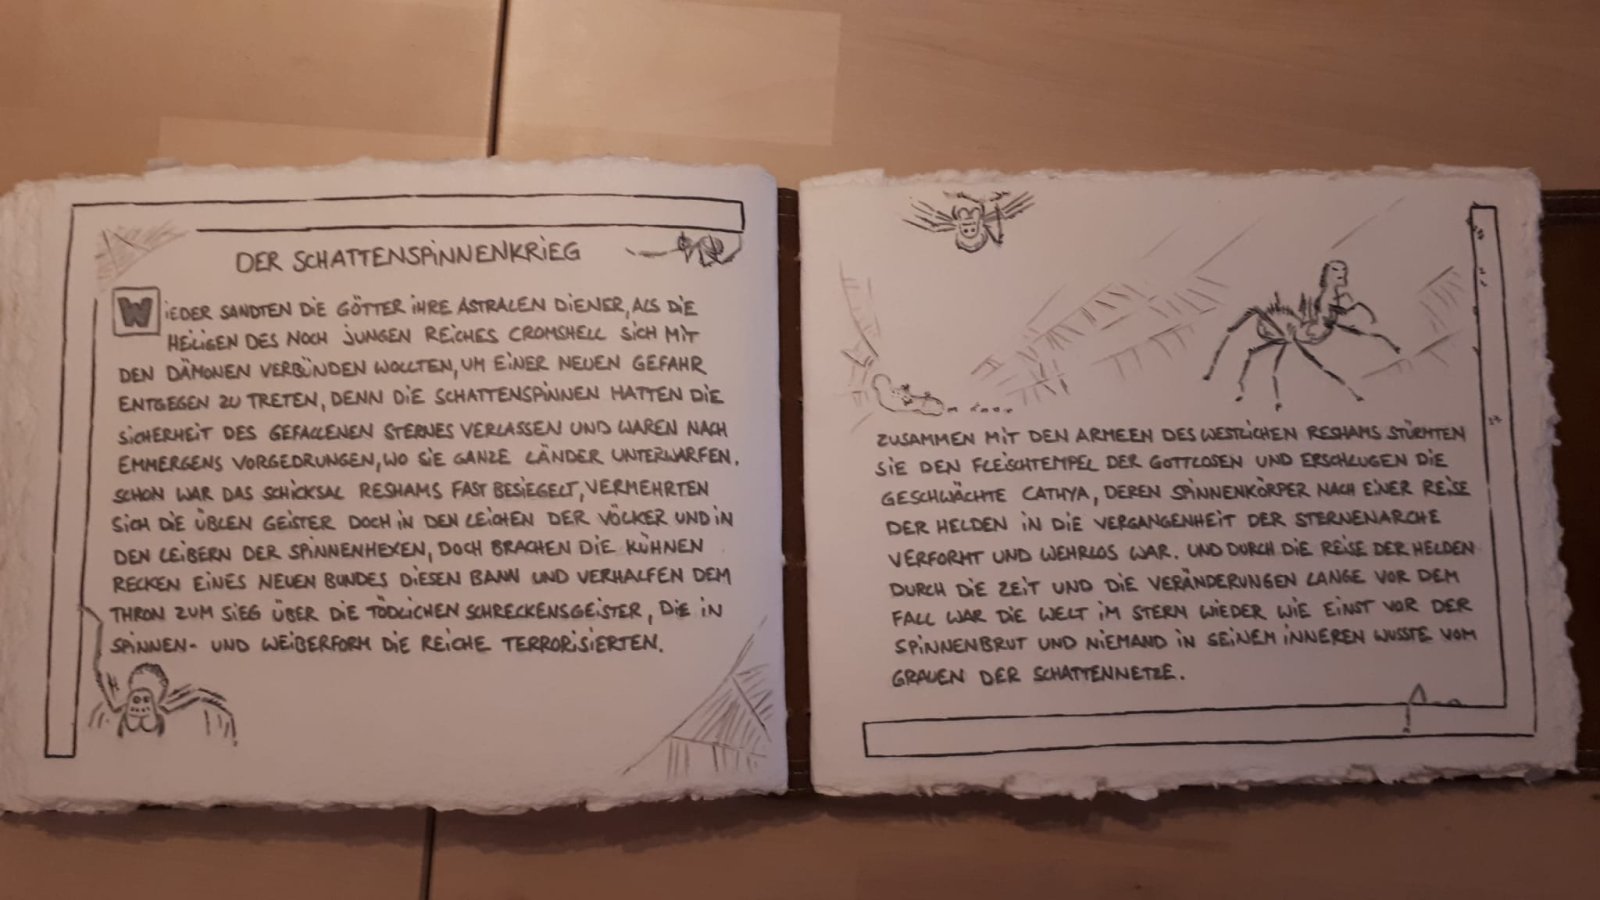 DER SCHATTENSPiNNENKRiEG
WiEDER SANDTEN DiE GÖTTER iHRE ASTRALEN DiENER, ALS DiE
HEiLiGEN DES NOCH JUNGEN REiCHES CROMSHELL SiCH MiT
DEN DÄMONEN VERBÜNDEN WOLLTEN, UM EiNER NEUEN GEFAHR
ENTGEGEN ZU TRETEN, DENN DiE SCHATTENSPiNNEN HATTEN DiE
SiCHERHEiT DES GEFALLENEN STERNES VERLASSEN UND WAREN NACH
EMMERGENS VORGEDRUNGEN, WO SiE GANZE LÄNDER UNTERWARFEN.
SCHON WAR DAS SCHiCKSAL RESHAMS FAST BESiEGELT, VERMEHRTEN
SiCH DiE ÜBLEN GEiSTER DOCH iN DEN LEiCHEN DER VÖLKER UND iN
DEN LEiBERN DER SPiNNENHEXEN, DOCH BRACHEN DiE KÜHNEN
RECKEN EiNES NEUEN BUNDES DiESEN BANN UND VERHALFEN DEM
THRON ZUM SiEG ÜBER DiE TÖDLiCHEN SCHRECKENSGEiSTER, DiE iN
SPiNNEN- UND WEiBERFORM DiE REiCHE TERRORiSiERTEN.
ZUSAMMEN MiT DEN ARMEEN DES WESTLiCHEN RESHAMS STÜRMTEN
SiE DEN FLEiSCHTEMPEL DER GOTTLOSEN UND ERSCHLUGEN DiE
GESCHWÄCHTE CATHYA, DEREN SPiNNENKÖRPER NACH EiNER REiSE
DER HELDEN iN DiE VERGANGENHEiT DER STERNENARCHE
VERFORMT UND WEHRLOS WAR. UND DURCH DiE REiSE DER HELDEN
DURCH DiE ZEiT UND DiE VERÄNDERUNGEN LANGE VOR DEM
FALL WAR DiE WELT iM STERN WiEDER WiE EiNST VOR DER
SPiNNENBRUT UND NiEMAND iN SEiNEM iNNEREN WUSSTE VOM
GRAUEN DER SCHATTENNETZE.